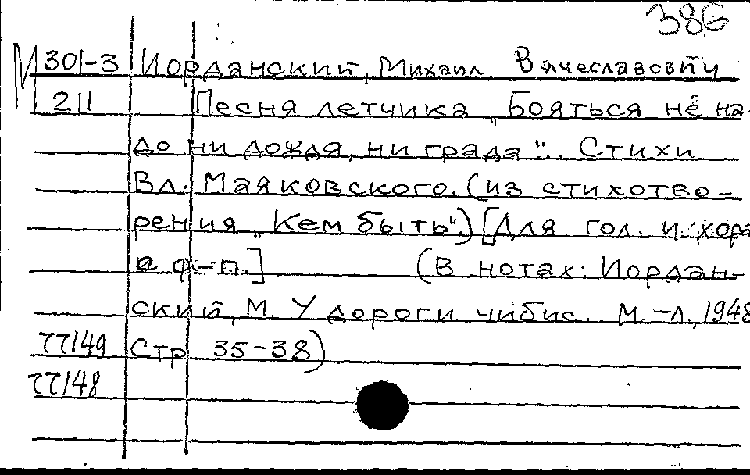 386
М 301-3 Иорданский, Михаил Вячеславович
211 Песня летчика „Бояться не на-
до ни дождя, ни града". Стихи
Вл. Маяковского. (из стихотво-
рения „Кем быть".) [Для гол. и хора
с ф-п.] (В нотах: Иордан-
ский, М. У дороги чибис. М.-Л., 1948
ТТ149 Стр 35-38)
ТТ148